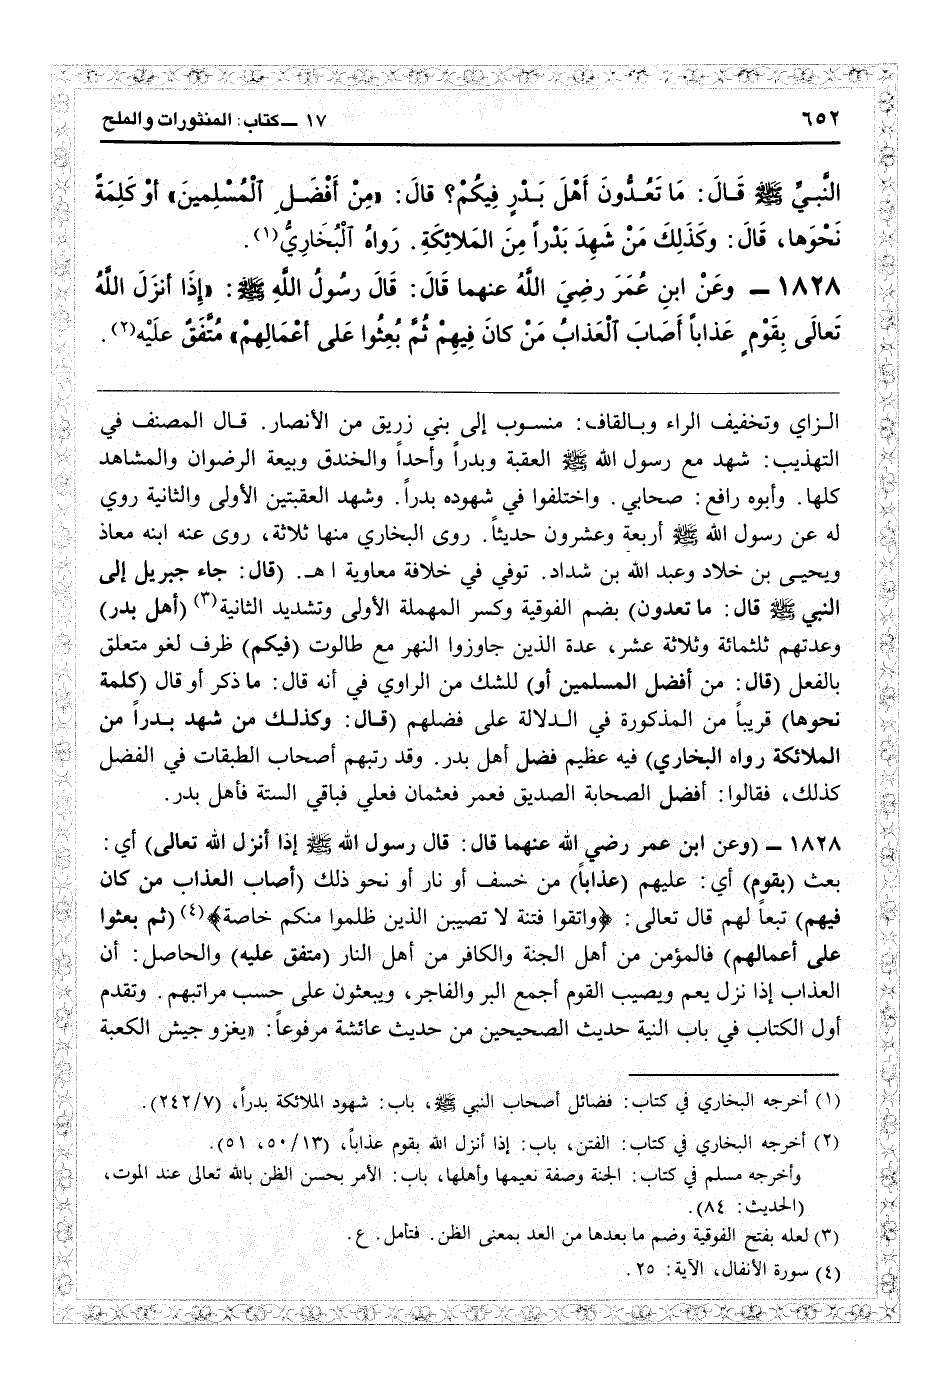 ٦٥٢ ١٧ ــ كتاب: المنثورات والملح
النَّبيِّ ﷺ قَالَ: مَا تَعُدُّونَ أَهْلَ بَدْرٍ فِيكُمْ؟ قالَ: «مِنْ أَفْضَلِ الْمُسْلِمينَ» أوْ كَلِمَةً
نَحْوَها، قَالَ: وكَذَلِكَ مَنْ شَهِدَ بَدْراً مِنَ المَلائِكَةِ. رَواهُ الْبُخَارِيُّ(١).
١٨٢٨ ــ وعَنْ ابنِ عُمَرَ رضِيَ اللَّهُ عنهما قَالَ: قَالَ رسُولُ اللَّهِ ﷺ: «إِذَا أنزَلَ اللَّهُ
تَعالَى بِقَوْمٍ عَذاباً أَصَابَ الْعَذابُ مَنْ كانَ فِيهِمْ ثُمَّ بُعِثُوا عَلى أعْمَالِهِمْ» مُتَّفَقٌ علَيْه(٢).
الزاي وتخفيف الراء وبالقاف: منسوب إلى بني زريق من الأنصار. قال المصنف في
التهذيب: شهد مع رسول الله ﷺ العقبة وبدراً وأحداً والخندق وبيعة الرضوان والمشاهد
كلها. وأبوه رافع: صحابي. واختلفوا في شهوده بدراً. وشهد العقبتين الأولى والثانية روي
له عن رسول الله ﷺ أربعة وعشرون حديثاً. روى البخاري منها ثلاثة، روى عنه ابنه معاذ
ويحيى بن خلاد وعبد الله بن شداد. توفي في خلافة معاوية ا هـ. (قال: جاء جبريل إلى
النبي ﷺ قال: ما تعدون) بضم الفوقية وكسر المهملة الأولى وتشديد الثانية(٣) (أهل بدر)
وعدتهم ثلثمائة وثلاثة عشر، عدة الذين جاوزوا النهر مع طالوت (فيكم) ظرف لغو متعلق
بالفعل (قال: من أفضل المسلمين أو) للشك من الراوي في أنه قال: ما ذكر أو قال (كلمة
نحوها) قريباً من المذكورة في الدلالة على فضلهم (قال: وكذلك من شهد بدراً من
الملائكة رواه البخاري) فيه عظيم فضل أهل بدر. وقد رتبهم أصحاب الطبقات في الفضل
كذلك، فقالوا: أفضل الصحابة الصديق فعمر فعثمان فعلي فباقي الستة فأهل بدر.
١٨٢٨ ــ (وعن ابن عمر رضي الله عنهما قال: قال رسول الله ﷺ إذا أنزل الله تعالى) أي:
بعث (بقوم) أي: عليهم (عذاباً) من خسف أو نار أو نحو ذلك (أصاب العذاب من كان
فيهم) تبعاً لهم قال تعالى: ﴿واتقوا فتنة لا تصيبن الذين ظلموا منكم خاصة﴾(٤) (ثم بعثوا
على أعمالهم) فالمؤمن من أهل الجنة والكافر من أهل النار (متفق عليه) والحاصل: أن
العذاب إذا نزل يعم ويصيب القوم أجمع البر والفاجر، ويبعثون على حسب مراتبهم. وتقدم
أول الكتاب في باب النية حديث الصحيحين من حديث عائشة مرفوعاً: «يغزو جيش الكعبة
(١) أخرجه البخاري في كتاب: فضائل أصحاب النبي ﷺ، باب: شهود الملائكة بدراً، (٢٤٢/٧).
(٢) أخرجه البخاري في كتاب: الفتن، باب: إذا أنزل الله بقوم عذاباً، (٥٠/١٣، ٥١).
وأخرجه مسلم في كتاب: الجنة وصفة نعيمها وأهلها، باب: الأمر بحسن الظن بالله تعالى عند الموت،
(الحديث: ٨٤).
(٣) لعله بفتح الفوقية وضم ما بعدها من العد بمعنى الظن. فتأمل. ع.
(٤) سورة الأنفال، الآية: ٢٥.